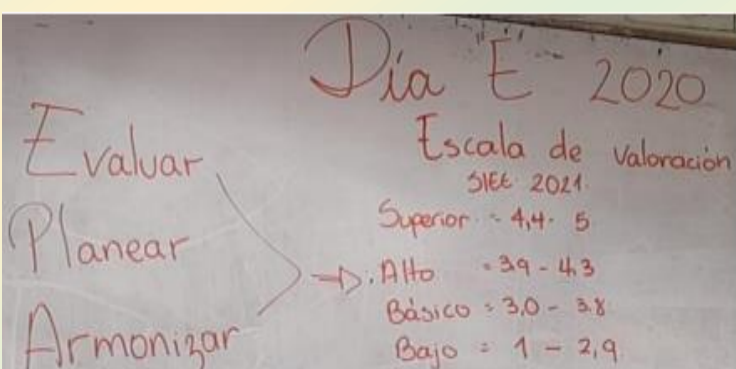 Día E 2020
Evaluar
Planear
Armonizar
Escala de Valoración
SIEE 2021.
Superior = 4,4 - 5
Alto = 3.9 - 4.3
Básico = 3.0 - 3.8
Bajo = 1 - 2,9